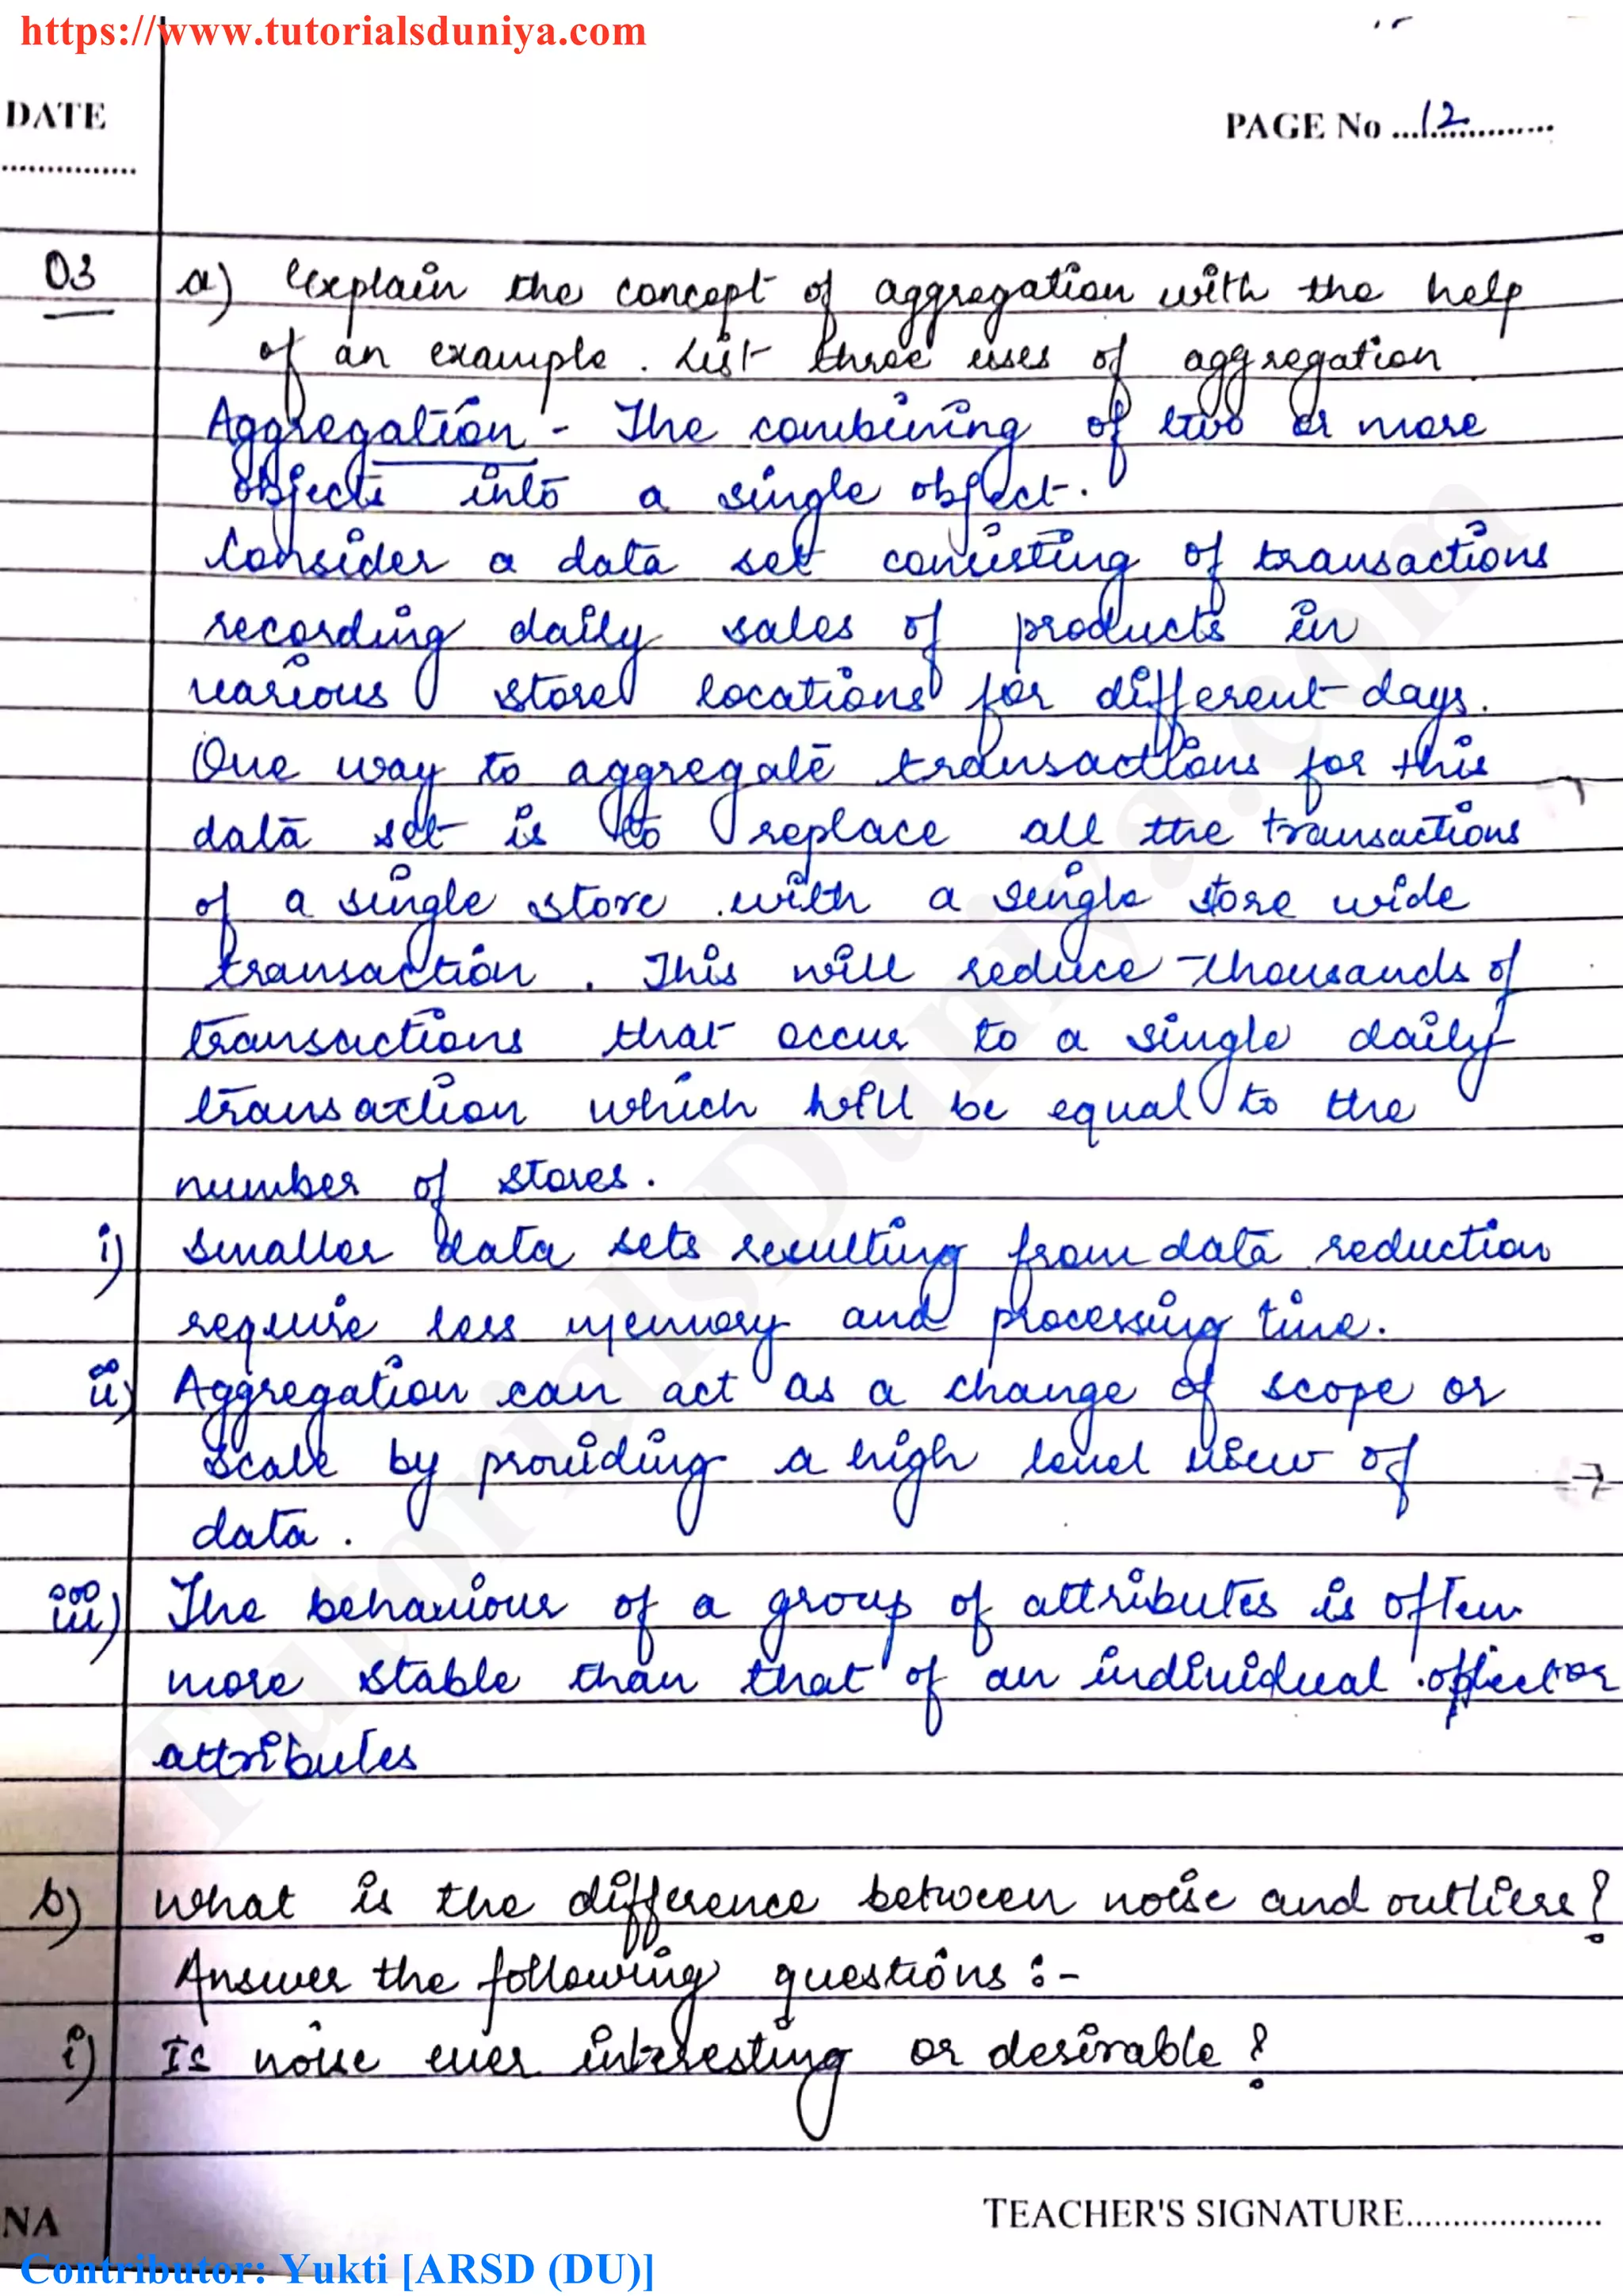 https://www.tutorialsduniya.com
DATE
PAGE No ...12...............
...............
Q3 a) Explain the concept of aggregation with the help
of an example. List three uses of aggregation
Aggregation - The combining of two or more
objects into a single object.
Consider a data set consisting of transactions
recording daily sales of products in
various store locations for different days.
One way to aggregate transactions for this
data set is to replace all the transactions
of a single store with a single store wide
transaction. This will reduce thousands of
transactions that occur to a single daily
transaction which will be equal to the
number of stores.
i) Smaller data sets resulting from data reduction
require less memory and processing time.
ii) Aggregation can act as a change of scope or
scale by providing a high level view of
data.
iii) The behaviour of a group of attributes is often
more stable than that of an individual object or
attributes
b) What is the difference between noise and outliers?
Answer the following questions :-
i) Is noise ever interesting or desirable?
NA
TEACHER'S SIGNATURE.....................
Contributor: Yukti [ARSD (DU)]
TutorialsDuniya.com